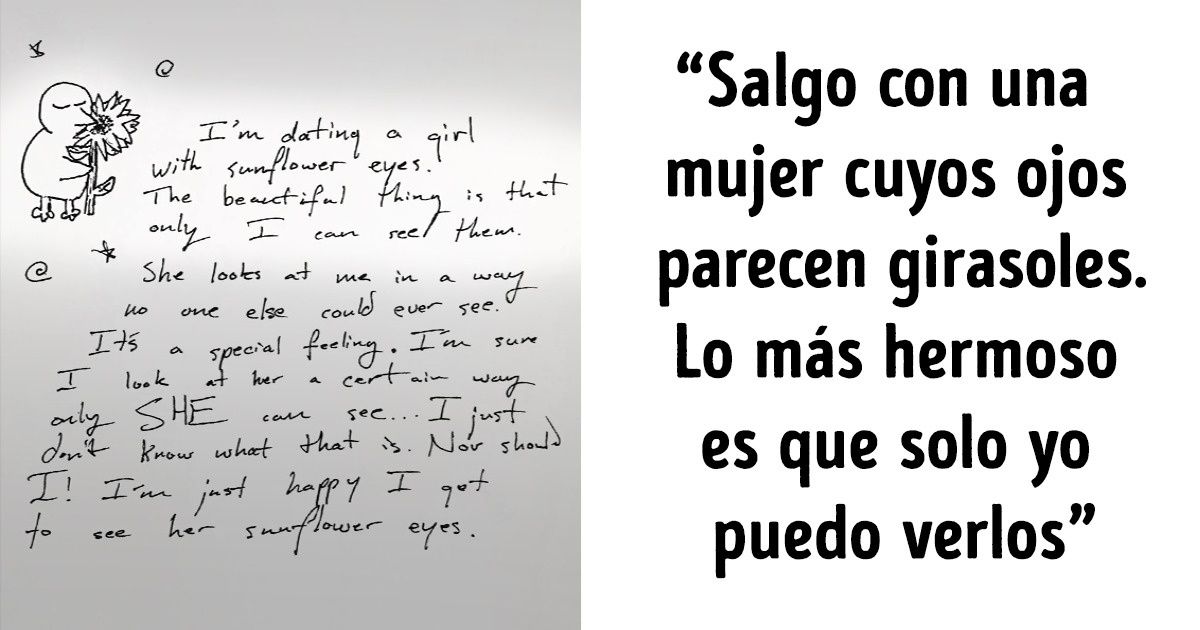 I'm dating a girl
with sunflower eyes.
The beautiful thing is that
only I can see them.
She looks at me in a way
no one else could ever see.
It's a special feeling. I'm sure
I look at her a certain way
only SHE can see... I just
don't know what that is. Nor should
I! I'm just happy I get
to see her sunflower eyes.
“Salgo con una
mujer cuyos ojos
parecen girasoles.
Lo más hermoso
es que solo yo
puedo verlos”